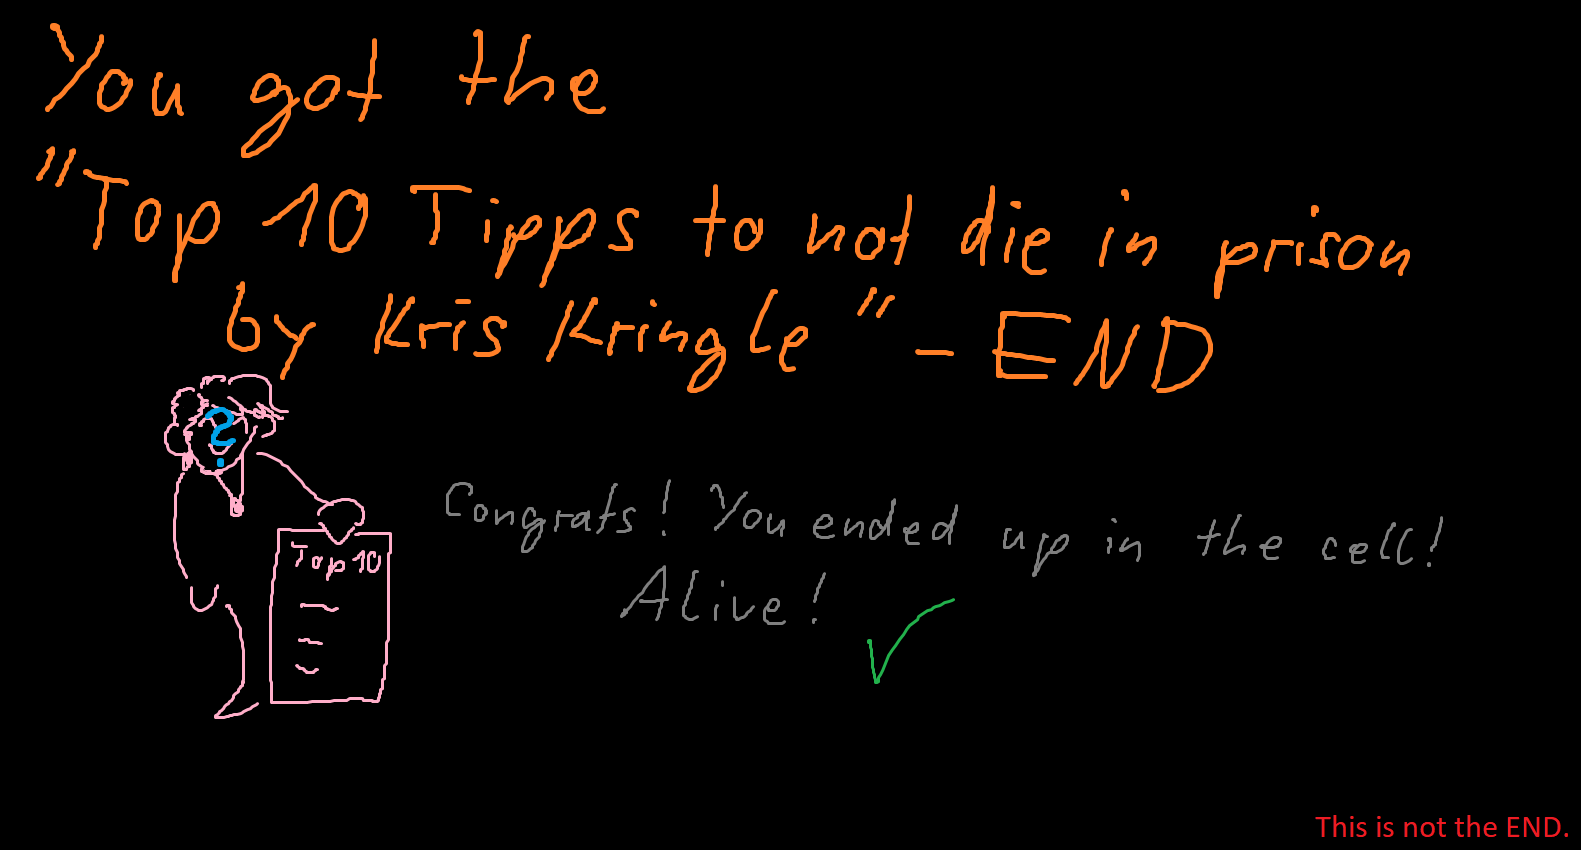 You got the
"Top 10 Tipps to not die in prison
by Kris Kringle" - END
?
Top 10
Congrats! You ended up in the cell!
Alive!
This is not the END.